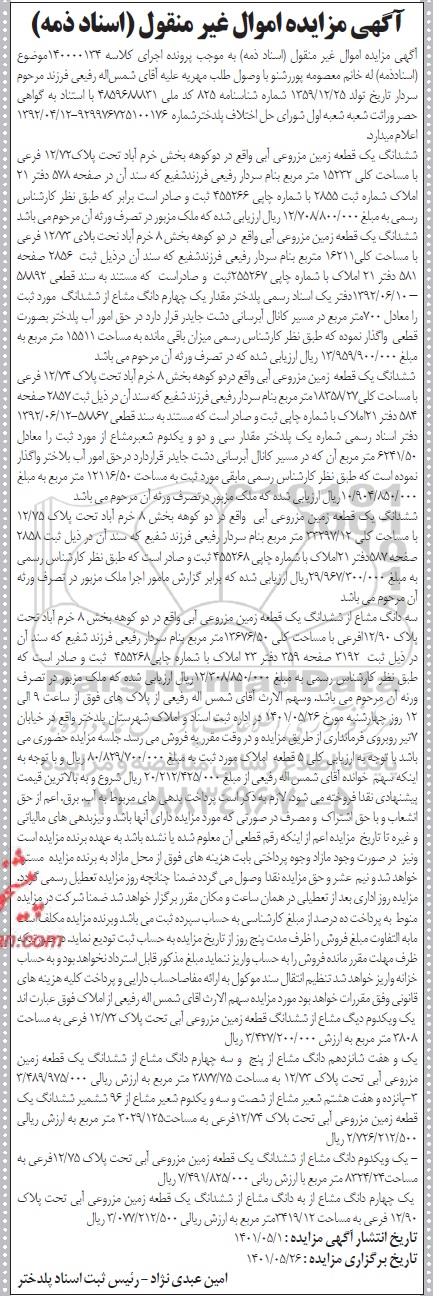 آگهی مزایده اموال غیر منقول (اسناد ذمه)
آگهی مزایده اموال غیر منقول (اسناد ذمه) به موجب پرونده اجرای کلاسه ۱۴۰۰۰۰۱۳۴موضوع
(اسنادذمه) له خانم معصومه پوررشنو با وصول طلب مهریه علیه آقای شمس‌اله رفیعی فرزند مرحوم
سردار تاریخ تولد ۱۳۵۹/۱۲/۲۵ شماره شناسنامه ۸۲۵ کد ملی ۴۸۵۹۶۸۸۸۳۱ با استناد به گواهی
حصر وراثت شعبه شعبه اول شورای حل اختلاف پلدخترشماره ۹۲۹۹۷۶۷۲۵۱۰۰۱۷۶-۱۳۹۲/۰۴/۱۲
اعلام میدارد.
ششدانگ یک قطعه زمین مزروعی آبی واقع در دوکوهه بخش خرم آباد تحت پلاک۱۲/۷۲ فرعی
با مساحت کلی ۱۵۲۳۲ متر مربع بنام سردار رفیعی فرزندشفیع که سند آن در صفحه ۵۷۸ دفتر ۲۱
املاک شماره ثبت ۲۸۵۵ با شماره چاپی ۴۵۵۲۶۶ ثبت و صادر است برابر که طبق نظر کارشناس
رسمی به مبلغ ۱۲/۷۰۸/۸۰۰/۰۰۰ ریال ارزیابی شده که ملک مزبور در تصرف ورثه آن مرحوم می باشد
ششدانگ یک قطعه زمین مزروعی آبی واقع در دو کوهه بخش ۸ خرم آباد تحت بلای ۱۲/۷۳ فرعی
با مساحت کلی۱۶۲۱۱ متربع بنام سردار رفیعی فرزندشفیع که سند آن درذیل ثبت ۲۸۵۶ صفحه
۵۸۱ دفتر ۲۱ املاک با شماره چاپی ۲۵۵۲۶۷ثبت و صادراست که مستند به سند قطعی ۵۸۸۹۲
–۱۳۹۲/۰۶/۱۰دفتر یک اسناد رسمی پلدختر مقدار یک چهارم دانگ مشاع از ششدانگ مورد ثبت
را معادل ۷۰۰متر مربع در مسیر کانال آبرسانی دشت جایدر قرار دارد در حق امور آب پلدختر بصورت
قطعی واگذار نموده که طبق نظر کارشناس رسمی میزان باقی مانده به مساحت ۱۵۵۱۱ متر مربع به
مبلغ ۱۳/۹۵۹/۹۰۰/۰۰۰ ریال ارزیابی شده که در تصرف ورثه آن مرحوم می باشد
ششدانگ یک قطعه زمین مزروعی آبی واقع دردو کوهه بخش ۸ خرم آباد تحت پلاک ۱۲/۷۴ فرعی
با مساحت کلی۱۸۳۵۸/۲۷متر مربع بنام سردار رفیعی فرزند شفیع که سند آن در ذیل ثبت۲۸۵۷ صفحه
۵۸۴ دفتر ۲۱املاک با شماره چاپی ثبت و صادر است که مستند به سند قطعی ۵۸۸۶۷-۱۳۹۲/۰۶/۱۲
دفتر اسناد رسمی شماره یک پلدختر مقدار سی و دو و یکدوم شعیرمشاع از مورد ثبت را معادل
۶۲۴۱/۵۰ متر مربع آن که در مسیر کانال آبرسانی دشت جایدر قراردارد درحق امور آب بلاختر واگذار
نموده است که طبق نظر کارشناس رسمی مابقی مورد ثبت به مساحت ۱۲۱۱۶/۵۰ متر مربع به مبلغ
۱۰/۹۰۴/۸۵۰/۰۰۰ریال ارزیابی شده که ملک مزبور درتصرف ورثه آن مرحوم می باشد
ششدانگ یک قطعه زمین مزروعی آبی واقع در دو کوهه بخش ۸ خرم آباد تحت پلاک ۱۲/۷۵
با مساحت کلی ۳۳۲۹۷/۱۲ متر مربع بنام سردار رفیعی فرزند شفیع که سند آن در ذیل ثبت ۲۸۵۸
صفحه۵۸۷دفتر ۲۱املاک با شماره چاپی ۴۵۵۲۶۸ ثبت و صادر است که طبق نظر کارشناس رسمی
به مبلغ ۲۹/۹۶۷/۳۰۰/۰۰۰ریال ارزیابی شده که برابر گزارش مامور اجرا ملک مزبور در تصرف ورثه
آن مرحوم می باشد
سه دانگ مشاع از ششدانگ یک قطعه زمین مزروعی آبی واقع در دو کوهه بخش ۸ خرم آباد تحت
بلاک ۱۲/۹۰فرعی با مساحت کلی ۱۳۶۷۶/۵۰متر مربع بنام سردار رفیعی فرزند شفیع که سند آن
در ذیل ثبت ۳۱۹۲ صفحه ۳۵۹ دفتر ۲۳ املاک با شماره چاپی۴۵۵۲۶۸ ثبت و صادر است که
طبق نظر کارشناس رسمی به مبلغ ۱۲/۳۰۸۸۵۰/۰۰۰ریال ارزیابی شده که ملک مزبور در تصرف
ورثه آن مرحوم می باشد. وسهم الارث آقای شمس اله رفیعی از پلاک های فوق از ساعت ۹ الی
۱۲ روز چهارشنبه مورخ ۱۴۰۱/۰۵/۲۶ در اداره ثبت اسناد و املاک شهرستان پلدختر واقع در خیابان
۷تیر روبروی فرمانداری از طریق مزایده و در وقت مقرر به فروش می رسد. جلسه مزایده حضوری می
باشد با توجه به ارزیابی کلی ۵ قطعه املاک مورد مزایده به مبلغ ۸۰/۸۳۹/۷۰۰/۰۰۰ ریال و با توجه به
اینکه سهم خوانده آقای شمس اله رفیعی از مبلغ ۲۰/۲۱۲/۴۲۵/۰۰۰ ریال شروع و به بالاترین قیمت
پیشنهادی نقدا فروخته می شود. لازم به ذکر است پرداخت بدهی های مربوطه به آب، برق، اعم از حق
انشعاب و با حق اشتراک و مصرف در صورتی که مورد مزایده دارای آنها باشد و نیزبدهی های مالیاتی
و غیره تا تاریخ مزایده اعم از اینکه رقم قطعی آن معلوم شده یا نشده باشد به عهده برنده مزایده است
ونیز در صورت وجود مازاد وجوه پرداختی بابت هزینه های فوق از محل مازاد به برنده مزایده مسترد
خواهد شد و نیم عشر و حق مزایده نقدا وصول می گردد ضمنا چنانچه روز مزایده تعطیل رسمی گردد.
مزایده روز اداری بعد از تعطیلی در همان ساعت و مکان مقرر برگزار خواهد شد ضمنا شرکت در مزایده
منوط به پرداخت ده درصد از مبلغ کارشناسی به حساب سپرده ثبت می باشد وبرنده مزایده مکلف است
مابه التفاوت مبلغ فروش را ظرف مدت پنج روز از تاریخ مزایده به حساب ثبت تودیع نماید. در صورتی که
ظرف مهلت مقرر مانده فروش را به حساب واریز ننماید مبلغ مذکور قابل استرداد نخواهد بود و به حساب
خزانه واریز خواهد شد تنظیم انتقال سند موکول به ارائه مفاصاحساب دارایی و پرداخت کلیه هزینه های
قانونی وفق مقررات خواهد بود مورد مزایده سهم الارث اقای شمس اله رفیعی از املاک فوق عبارت اند
یک ویکدوم دیگ مشاع از ششدانگ یک قطعه زمین مزروعی آبی تحت پلاک ۱۲/۷۲ فرعی به مساحت
۳۸۰۸ متر مربع به ارزش ۳/۴۲۷/۲۰۰/۰۰۰ ریال
یک و هفت شانزدهم دانگ مشاع از پنج و سه چهارم دانگ مشاع از ششدانگ یک قطعه زمین
مزروعی آبی تحت پلاک ۱۲/۷۳ به مساحت ۳۸۷۷/۷۵ متر مربع به ارزش ریالی ۳/۴۸۹/۹۷۵/۰۰۰
۳-پانزده و هفت هشتم شعیر مشاع از شصت و سه و یکدوم شعیر مشاع از ۹۶ ششمیر ششدانگ یک
قطعه زمین مزروعی آبی تحت بلاک ۱۲/۷۴فرعی به مساحت۳۰۲۹/۱۲۵ متر مربع به ارزش ریالی
۲/۷۲۶/۲۱۲/۵۰۰ ریال
– یک ویکدوم دانگ مشاع از ششدانگ یک قطعه زمین مزروعی آبی تحت پلاک ۱۲/۷۵فرعی به
مساحت۸۳۲۴/۲۴ متر مربع با ارزش ربانی ۷/۴۹۱/۸۲۵/۰۰۰ ریال
یک چهارم دانگ مشاع از به دانگ مشاع از ششدانگ یک قطعه زمین مزروعی آبی تحت پلاک
۱۲/۹۰ فرعی به مساحت ۳۴۱۹/۱۲متر مربع به ارزش ریالی ۳/۰۷۷/۲۱۲/۵۰۰ ریال
تاریخ انتشار آگهی مزایده : ۱۴۰۱/۰۵/۱
تاریخ برگزاری مزایده : ۱۴۰۱/۰۵/۲۶
امین عبدی نژاد – رئیس ثبت اسناد پلدختر